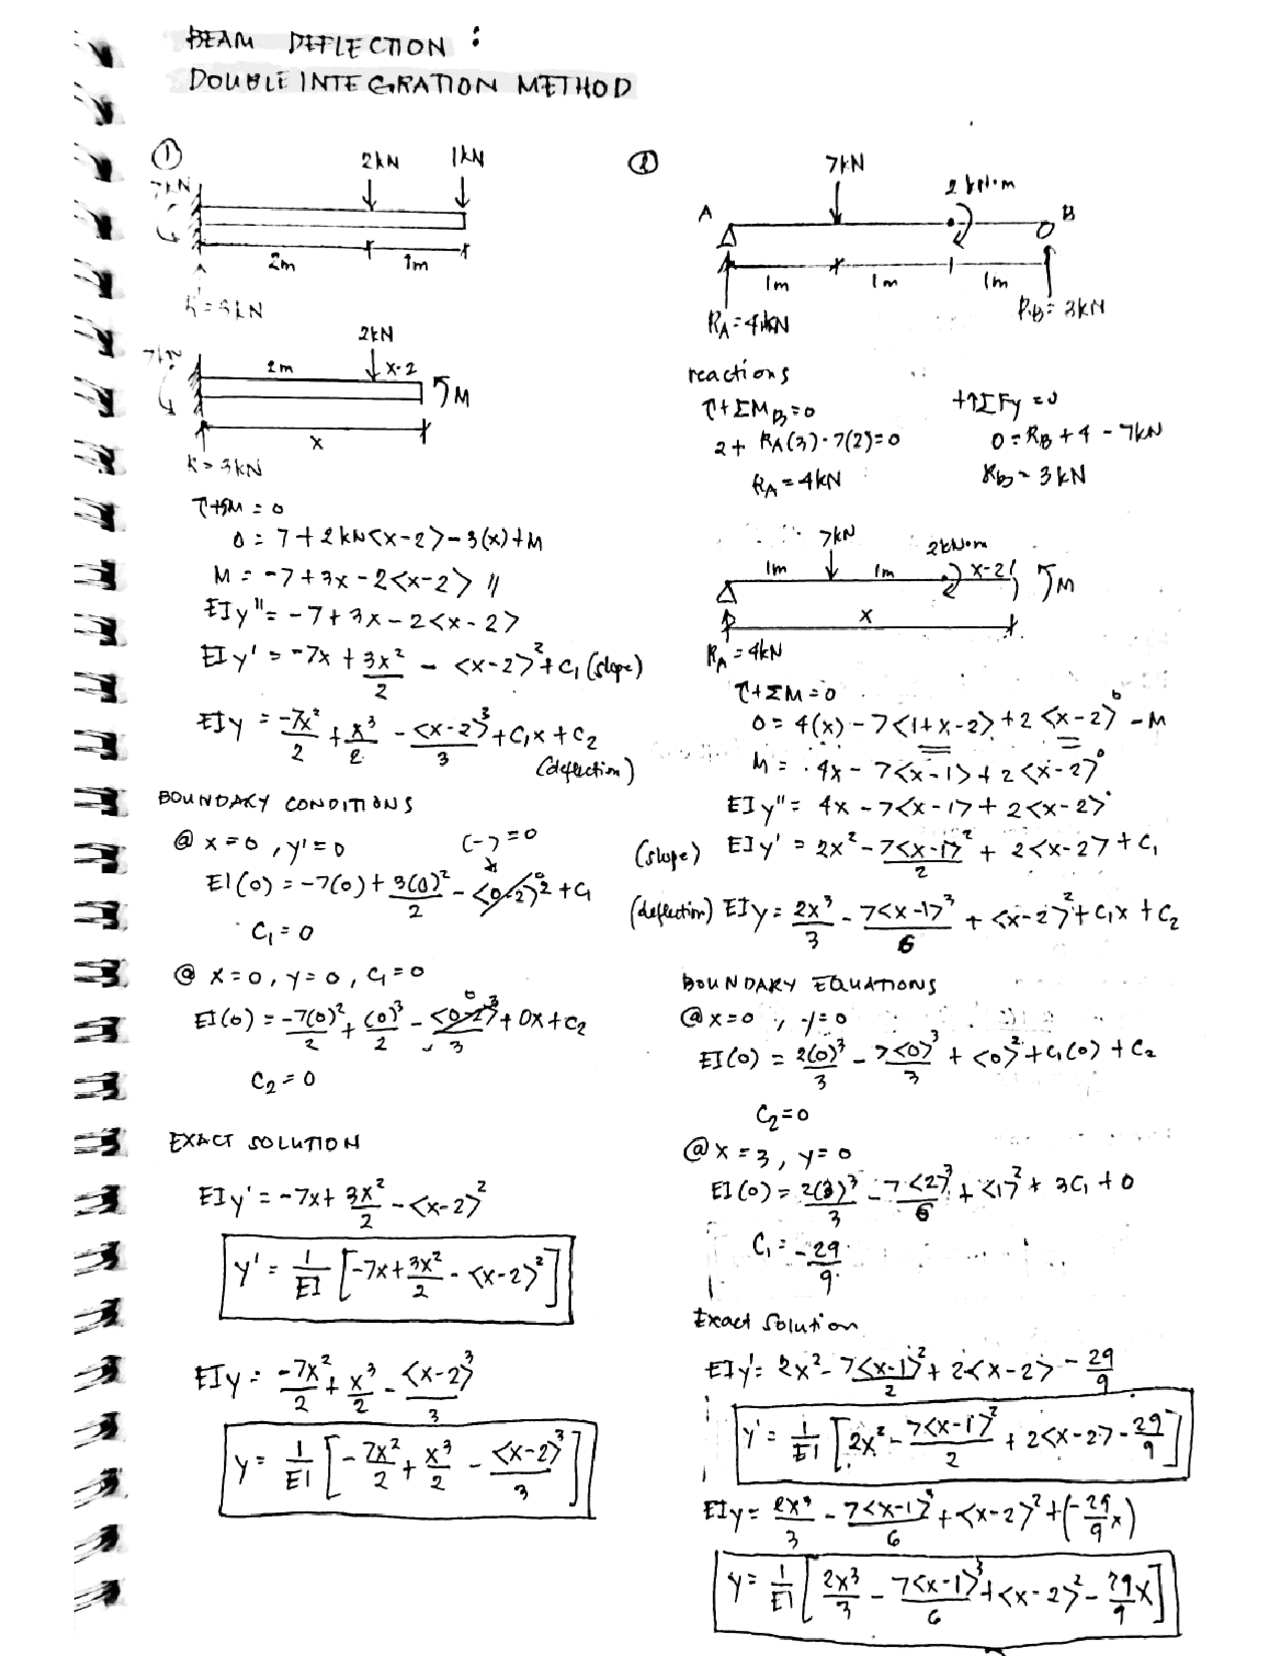 BEAM DEFLECTION :
DOUBLE INTEGRATION METHOD
①
2kN 1kN
7kN
2m 1m
R = 3kN
2kN
7kN
2m x-2 M
x
R = 3kN
↑+ΣM = 0
0 = 7 + 2kN<x-2> - 3(x) + M
M = -7 + 3x - 2<x-2> //
EIy" = -7 + 3x - 2<x-2>
EIy' = -7x + 3x²/2 - <x-2>² + C₁ (slope)
EIy = -7x²/2 + x³/2 - <x-2>³/3 + C₁x + C₂
(deflection)
BOUNDARY CONDITIONS
@ x=0, y'=0 (-)=0
EI(0) = -7(0) + 3(0)²/2 - <0-2>² + C₁ 0
C₁ = 0
@ x=0, y=0, C₁=0
EI(0) = -7(0)²/2 + (0)³/2 - <0-2>³/3 + 0x + C₂ 0
C₂ = 0
EXACT SOLUTION
EIy' = -7x + 3x²/2 - <x-2>²
y' = 1/EI [-7x + 3x²/2 - <x-2>²]
EIy = -7x²/2 + x³/2 - <x-2>³/3
y = 1/EI [-7x²/2 + x³/2 - <x-2>³/3]
②
7kN 2 kN·m
A B
1m 1m 1m
R_A = 4kN R_B = 3kN
reactions
↑+ΣM_B = 0 +↑ΣFy = 0
2 + R_A(3) - 7(2) = 0 0 = R_B + 4 - 7kN
R_A = 4kN R_B = 3kN
7kN 2kN·m
1m 1m x-2 M
x
R_A = 4kN
↑+ΣM = 0
0 = 4(x) - 7<1+x-2> + 2<x-2>⁰ - M
M = 4x - 7<x-1> + 2<x-2>⁰
EIy" = 4x - 7<x-1> + 2<x-2>⁰
(slope) EIy' = 2x² - 7<x-1>²/2 + 2<x-2> + C₁
(deflection) EIy = 2x³/3 - 7<x-1>³/6 + <x-2>² + C₁x + C₂
BOUNDARY EQUATIONS
@ x=0, y=0
EI(0) = 2(0)³/3 - 7<0>³/3 + <0>² + C₁(0) + C₂
C₂=0
@ x=3, y=0
EI(0) = 2(3)³/3 - 7<2>³/6 + <1>² + 3C₁ + 0
C₁ = -29/9
Exact Solution
EIy' = 2x² - 7<x-1>²/2 + 2<x-2> - 29/9
y' = 1/EI [2x² - 7<x-1>²/2 + 2<x-2> - 29/9]
EIy = 2x³/3 - 7<x-1>³/6 + <x-2>² + (-29/9 x)
y = 1/EI [2x³/3 - 7<x-1>³/6 + <x-2>² - 29/9 x]